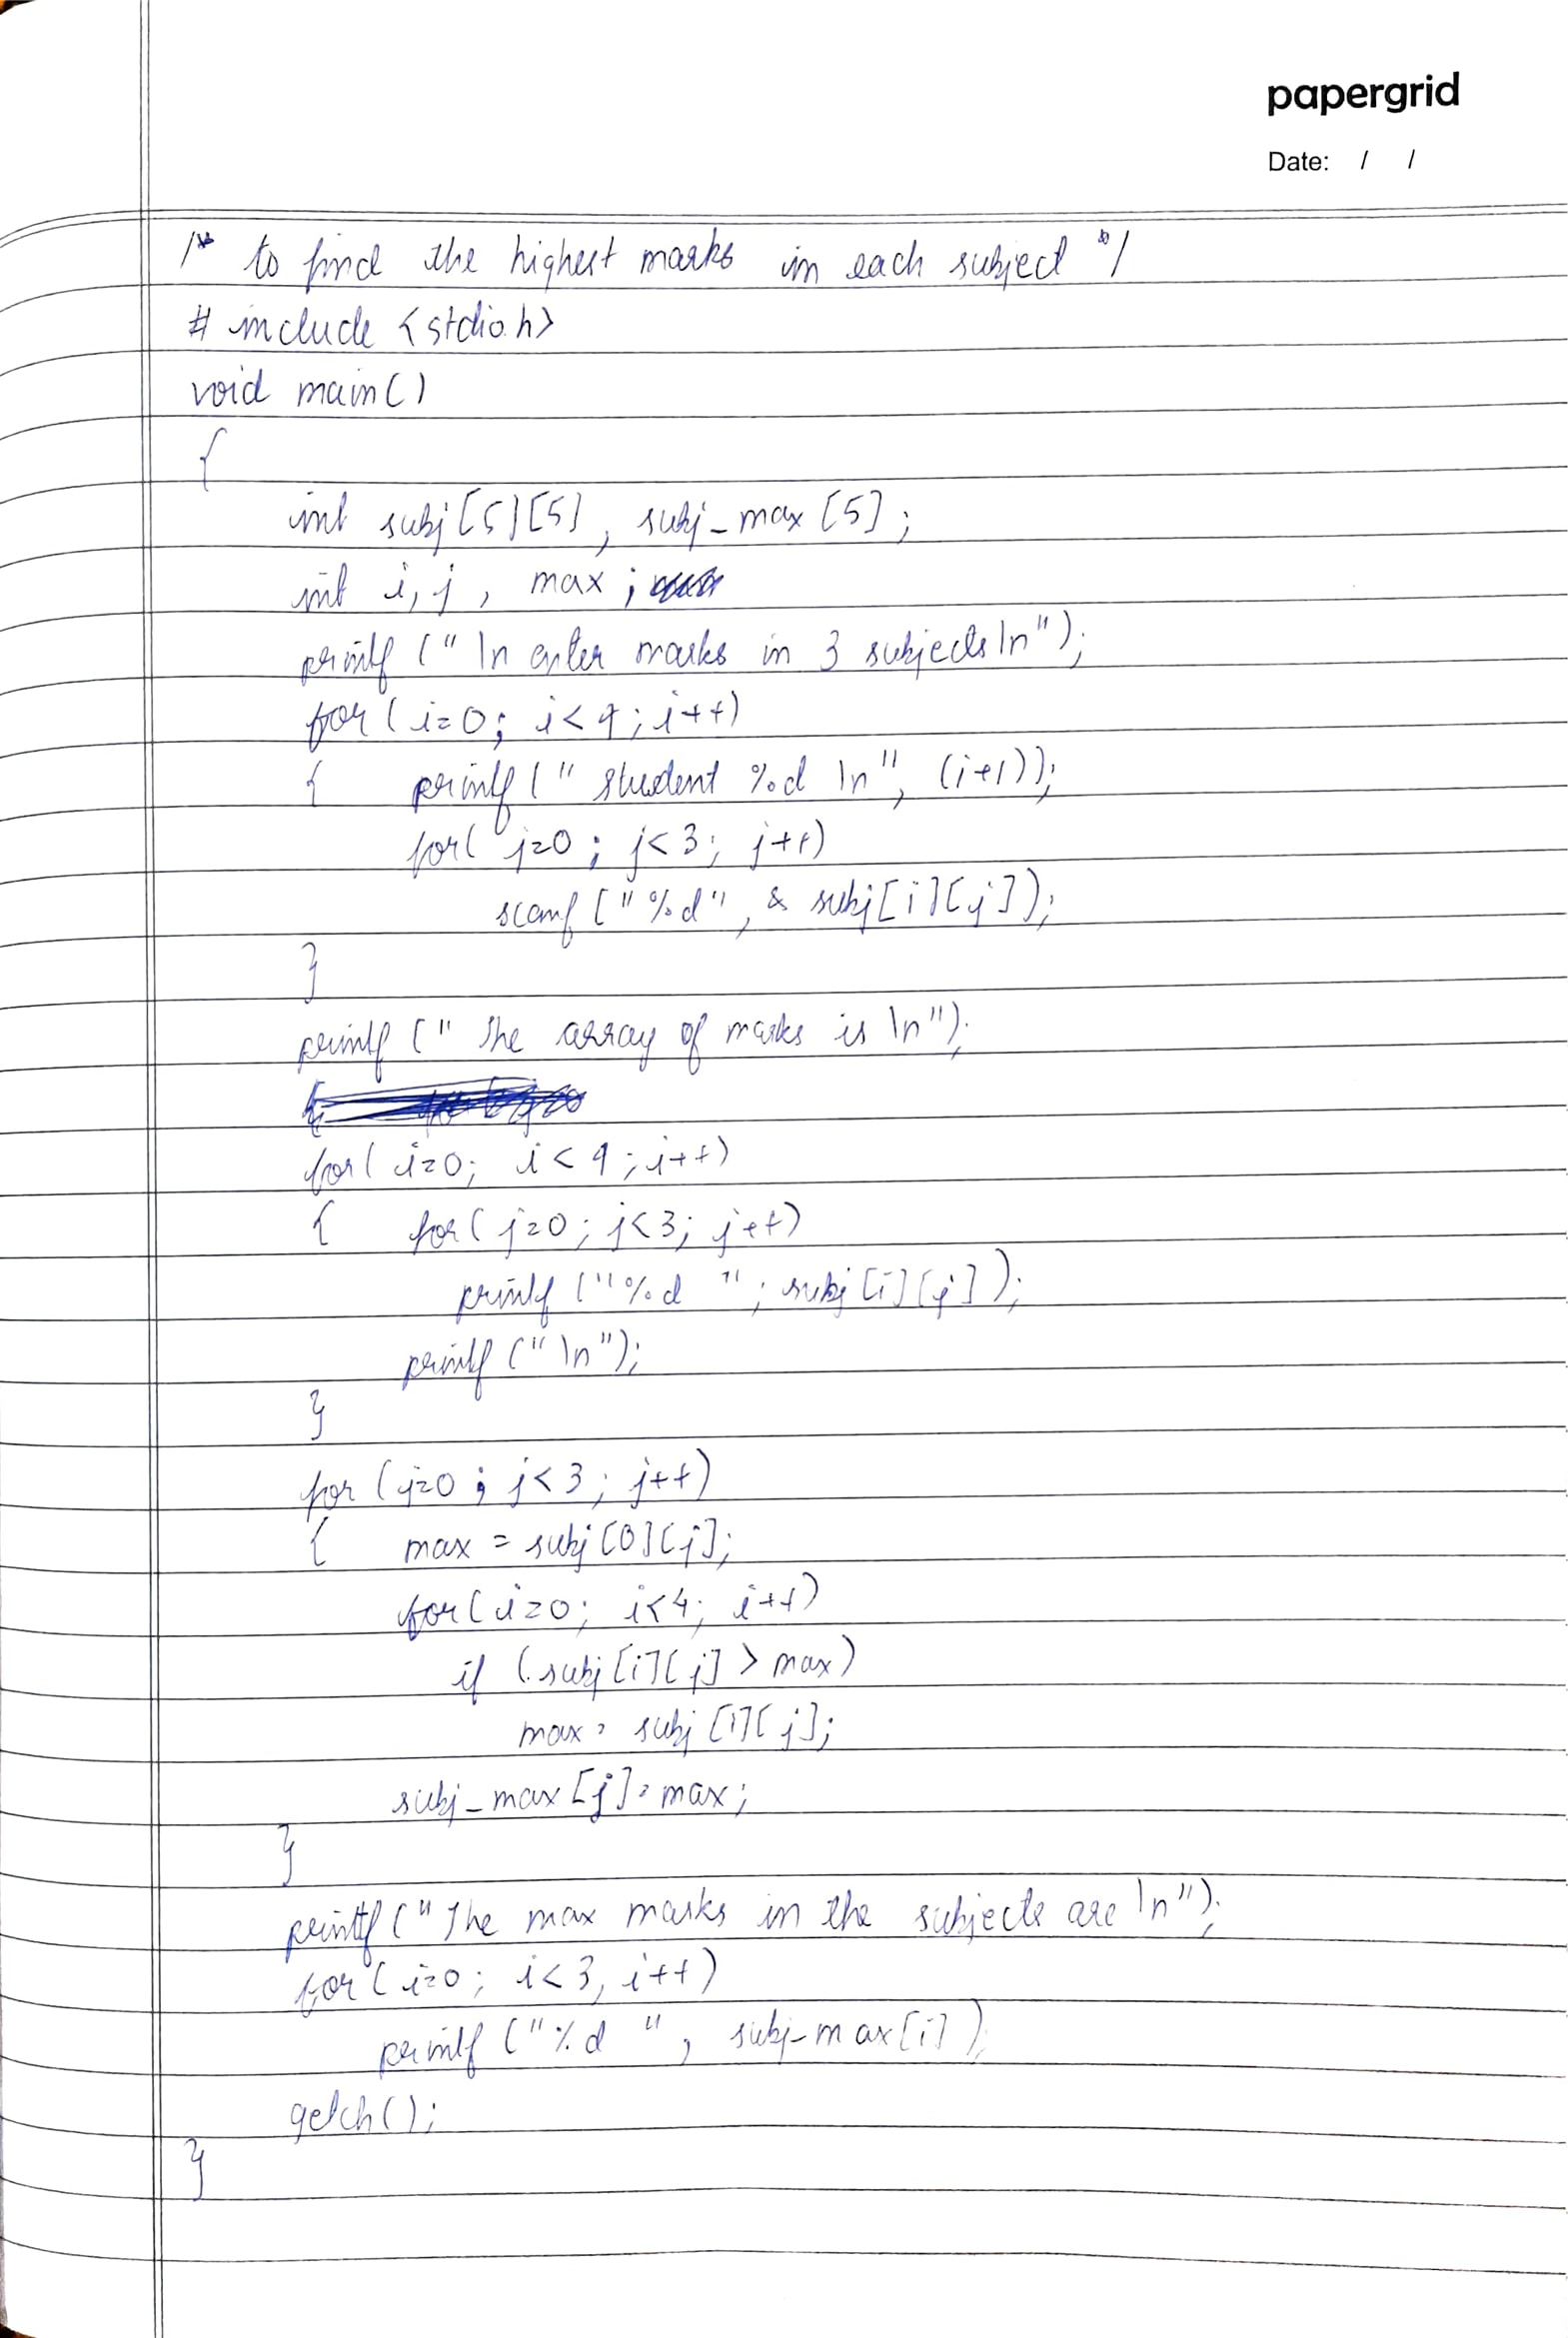 papergrid
Date: / /
/* to find the highest marks in each subject */
# include <stdio.h>
void main()
{
int subj[5][5], subj_max[5];
int i, j, max;
printf ("\n enter marks in 3 subjects\n");
for (i=0; i<4; i++)
{ printf (" student %d \n", (i+1));
for( j=0; j<3; j++)
scanf ("%d", & subj[i][j]);
}
printf (" The array of marks is \n");
for( i=0; i<4; i++)
{ for( j=0; j<3; j++)
printf ("%d "; subj[i][j]);
printf ("\n");
}
for (j=0; j<3; j++)
{ max = subj[0][j];
for(i=0; i<4; i++)
if (subj[i][j] > max)
max = subj[i][j];
subj_max[j]=max;
}
printf ("The max marks in the subjects are \n");
for (i=0; i<3, i++)
printf ("%d ", subj_max[i]);
getch();
}